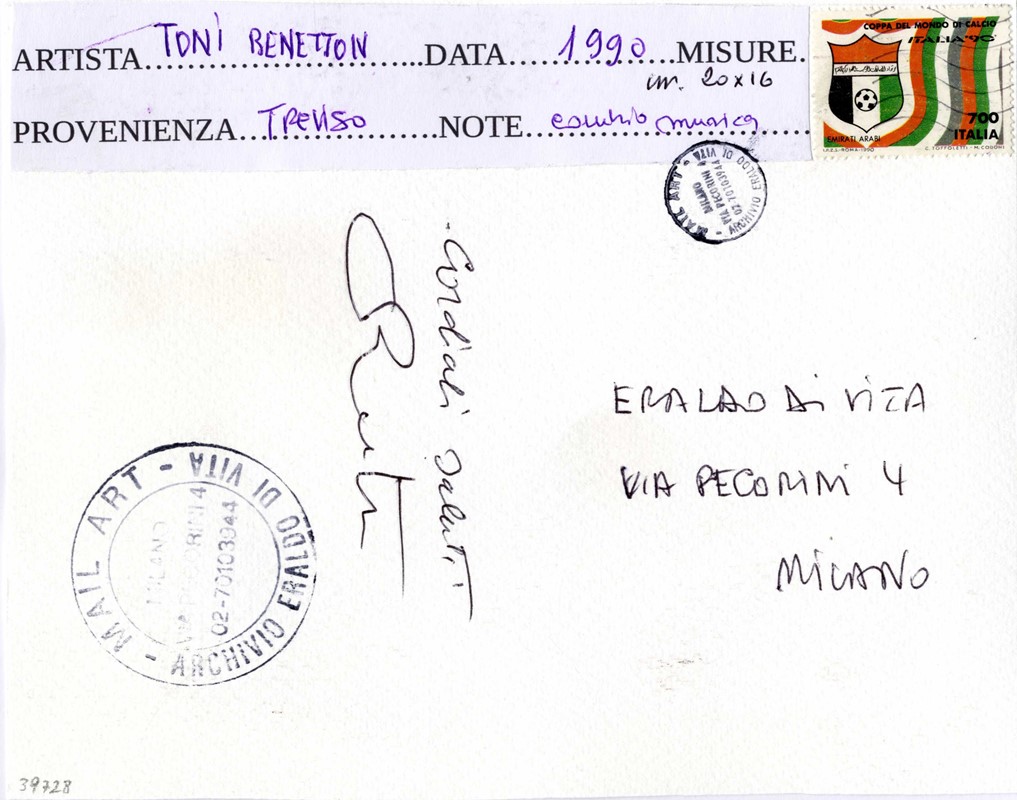 ARTISTA TONI BENETTON DATA 1990 MISURE.
cm. 20x16
PROVENIENZA TREVISO NOTE musica
COPPA DEL MONDO DI CALCIO
ITALIA '90
EMIRATI ARABI
700
ITALIA
I.P.Z.S.-ROMA-1990
MAIL ART - ARCHIVIO ERALDO DI VITA -
MILANO
VIA PECORINI 4
02.70103944
- Cordiali saluti
ERALDO Di VITA
VIA PECORINI 4
MILANO
MAIL ART - ARCHIVIO ERALDO DI VITA -
MILANO
VIA PECORINI 4
02-70103944
39728